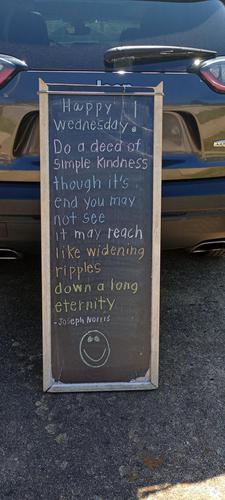 Jeep
Happy !
Wednesday!
Do a deed of
simple kindness
though it's
end you may
not see
it may reach
like widening
ripples
down a long
eternity
-Joseph Norris